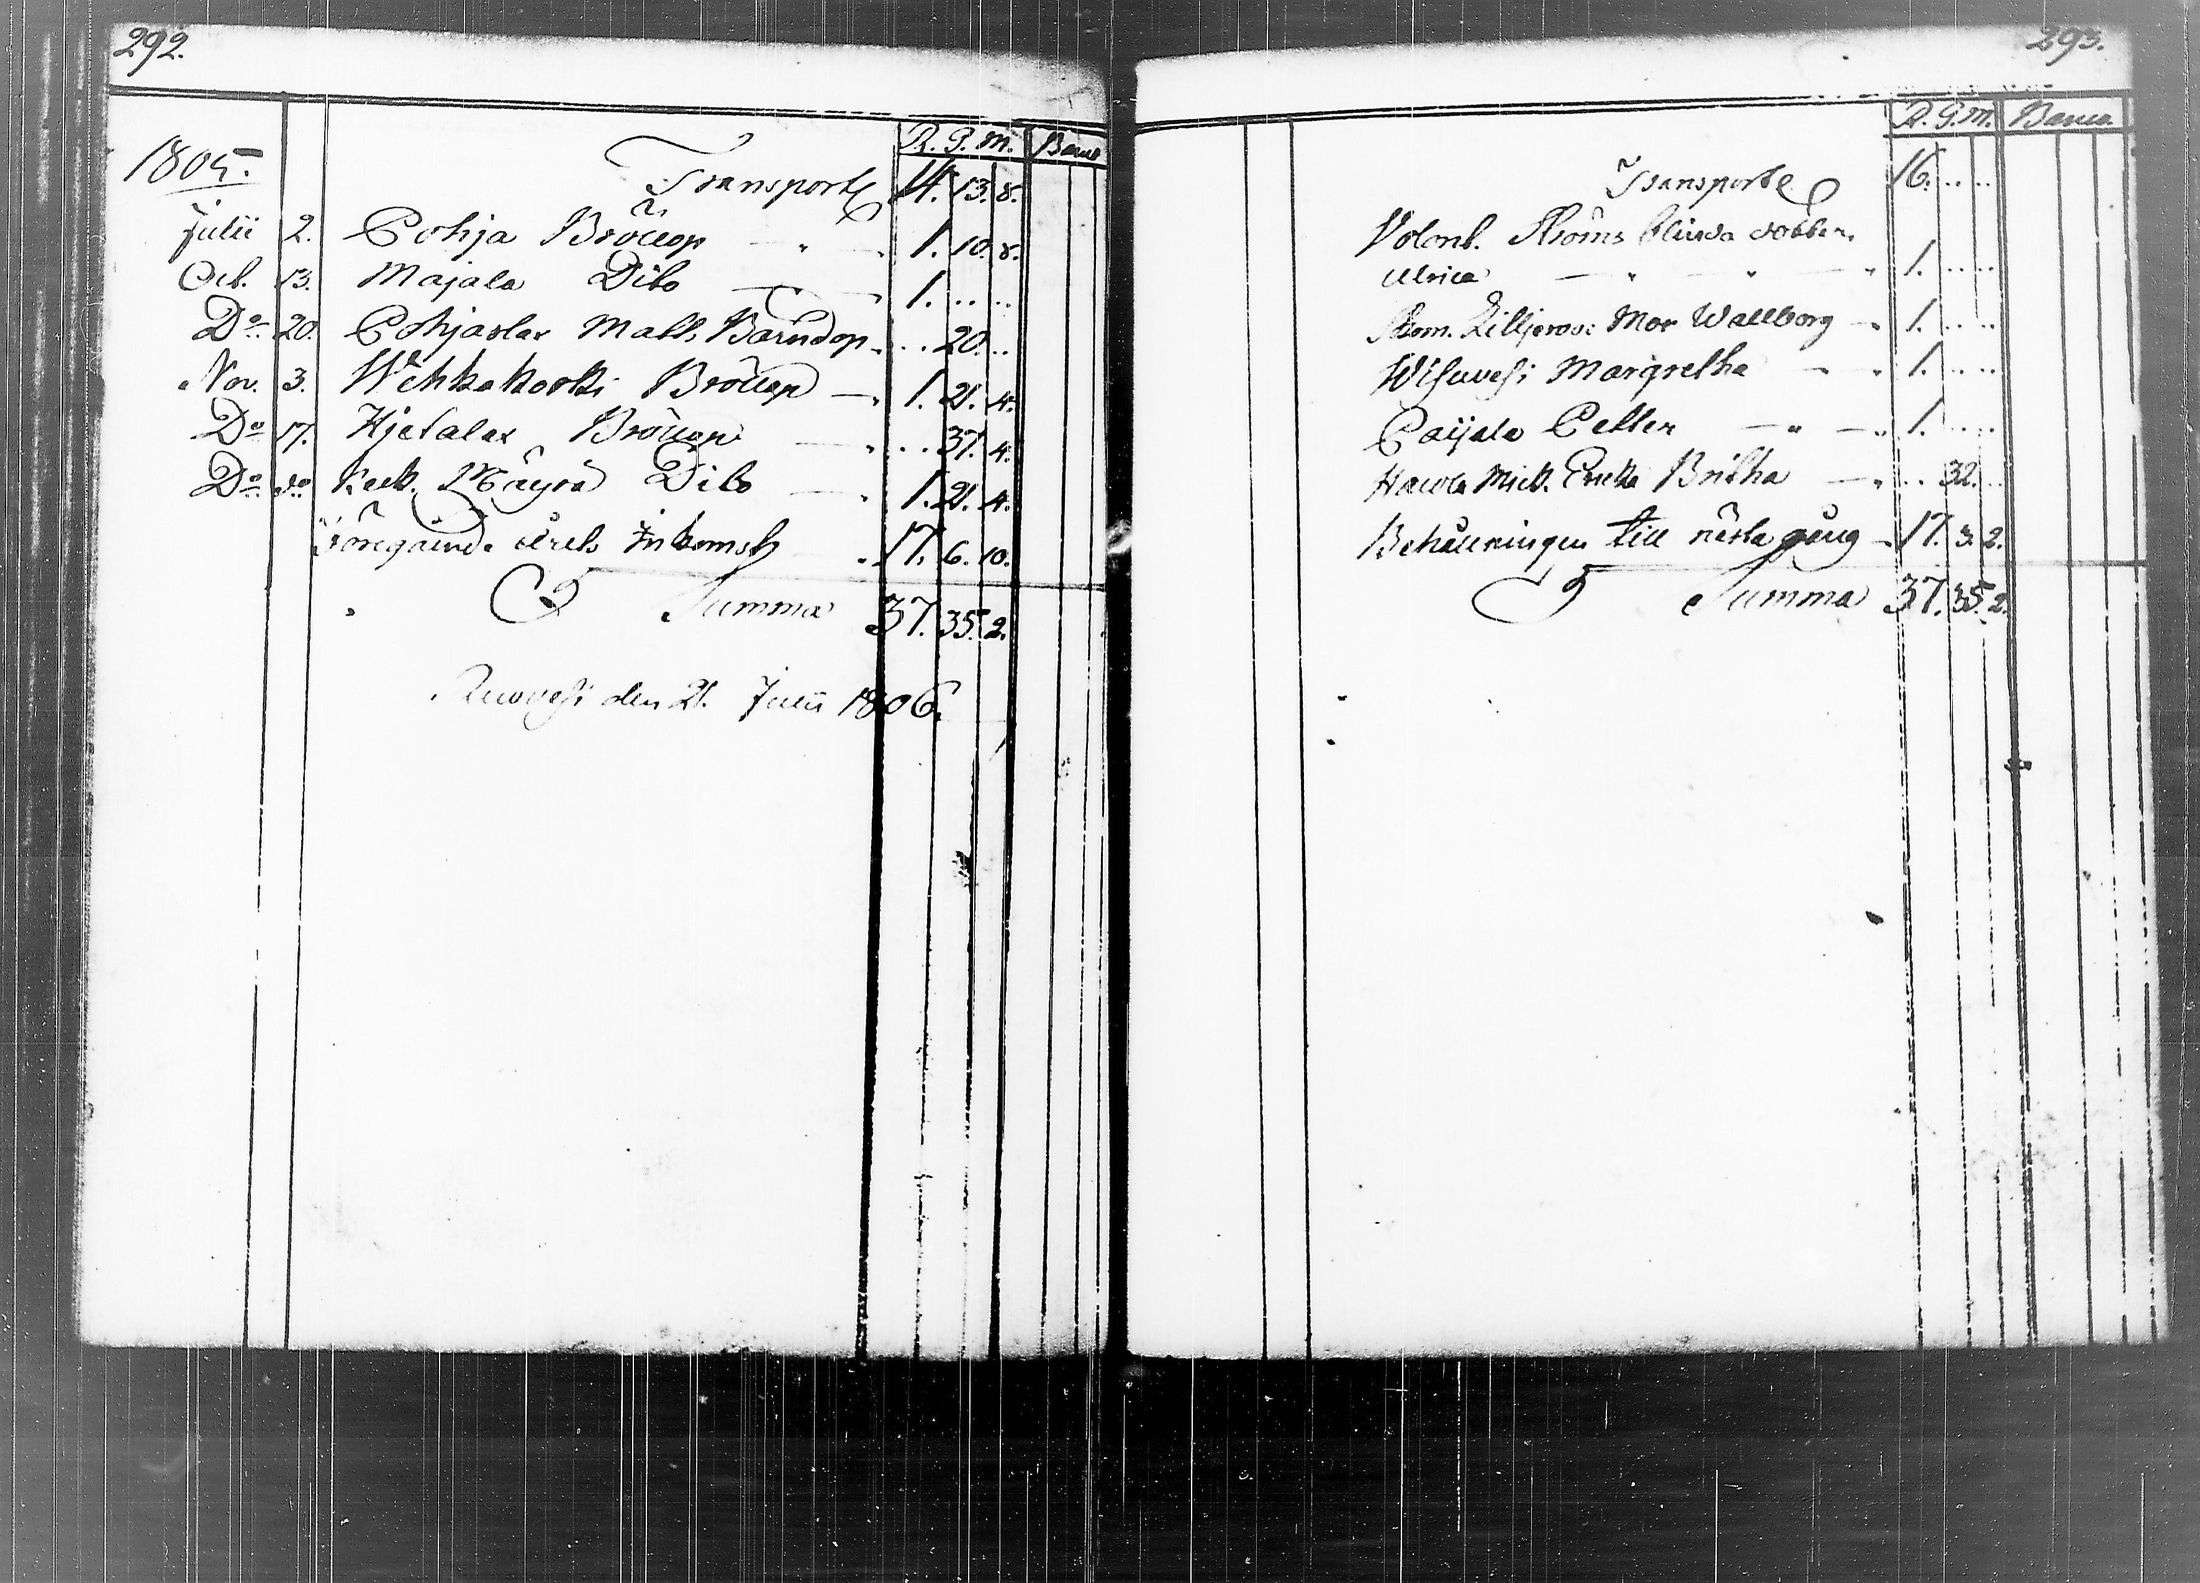 292.
R. G. m. Banco
1805.
Transport 14. 13. 8.
Julii 2. Pohja Bröllop — " — 1. 10. 8.
Oct. 13. Majala Dito — " — 1. .. ..
Do 20. Pohjaslax Matts Barndop . .. 20. ..
Nov. 3. Wehkakoski Bröllop — " 1. 21. 4.
Do 17. Hjetalax Bröllop — " .. 37. 4.
Do do Keck. Mäyrä Dito — " 1. 21. 4.
Föregående årets Inkomst . 17. 6. 10.
Summa 37. 35. 2.
Ruovesi den 21. Julii 1806.
293.
R. G. m. Banco
Transport 16. .. ..
Volont. Ströms blinda dotter
Ulrica — " — " — " 1. .. ..
Lilljeros Mor Wallborg — " 1. .. ..
Wisuvesi Margretha — " 1. .. ..
Paijala Petter — " — " 1. .. ..
Mick. Ericks Britha — " .. 32. ..
Behållningen till nästa gång — 17. 3. 2.
Summa 37. 35. 2.